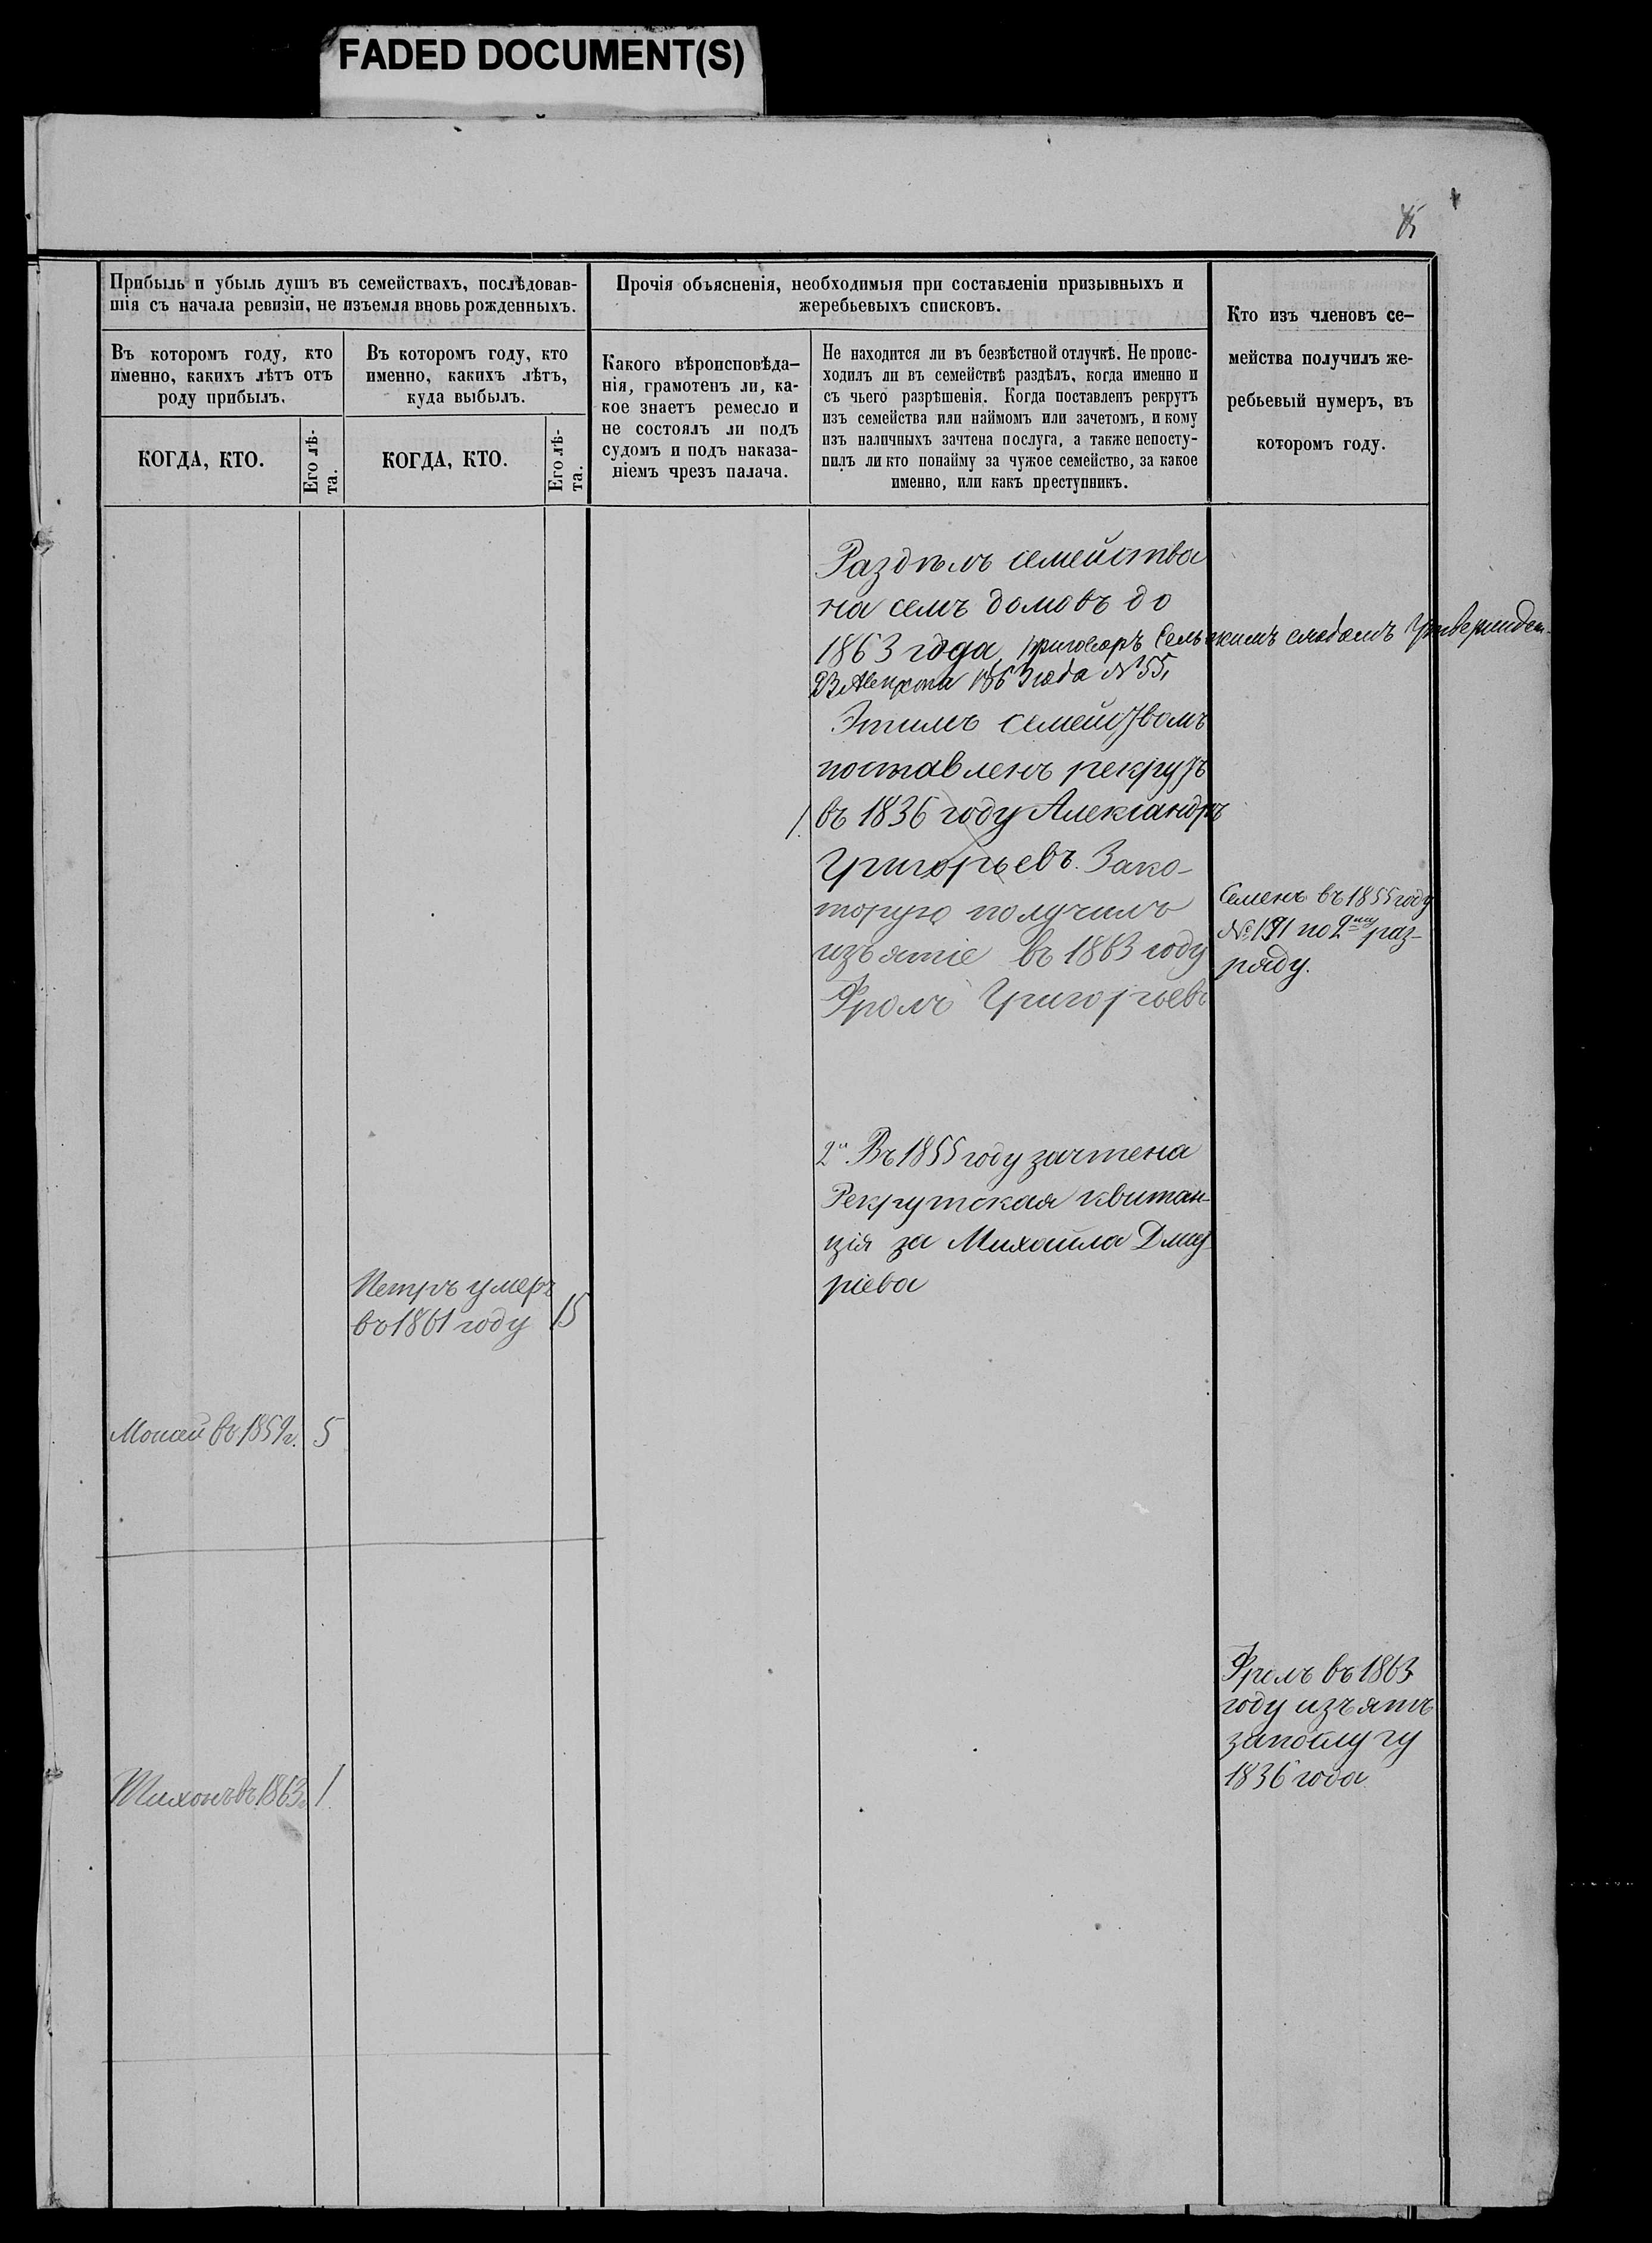 FADED DOCUMENT(S)
Прибыль и убыль душъ въ семействахъ, послѣдовав-
шія съ начала ревизіи, не изъемля вновь рожденныхъ.
Въ которомъ году, кто
именно, какихъ лѣтъ отъ
роду прибылъ.
КОГДА, КТО.
Его лѣ-
та.
Въ которомъ году, кто
именно, какихъ лѣтъ,
куда выбылъ.
КОГДА, КТО.
Его лѣ-
та.
Прочія объясненія, необходимыя при составленіи призывныхъ и
жеребьевыхъ списковъ.
Какого вѣроисповѣда-
нія, грамотенъ ли, ка-
кое знаетъ ремесло и
не состоялъ ли подъ
судомъ и подъ наказа-
ніемъ чрезъ палача.
Не находится ли въ безвѣстной отлучкѣ. Не проис-
ходилъ ли въ семействѣ раздѣлъ, когда именно и
съ чьего разрѣшенія. Когда поставленъ рекрутъ
изъ семейства или наймомъ или зачетомъ, и кому
изъ наличныхъ зачтена послуга, а также непосту-
пилъ ли кто понайму за чужое семейство, за какое
именно, или какъ преступникъ.
Кто изъ членовъ се-
мейства получилъ же-
ребьевый нумеръ, въ
которомъ году.
Раздѣлъ семейства
на семъ домовъ до
1863 года, приговоръ Сельскимъ сходомъ
23 1863 года № 55,
Этимъ семействомъ
поставленъ рекрутъ
1. въ 1836 году Александръ
Григорьевъ. Зако-
торую получилъ
изъятіе въ 1863 году
Фролъ Григорьевъ
Семенъ въ 1855 году
№ 191 по 2му раз-
ряду.
2й. Въ 1855 году зачтена
Рекрутская квитан-
ція за Михаила Дмит-
ріева
Петръ умеръ
въ 1861 году 15
въ 1859 г. 5
Фролъ въ 1863
году изъятъ
запослугу
1836 года
Тихонъ въ 1863 г. 1